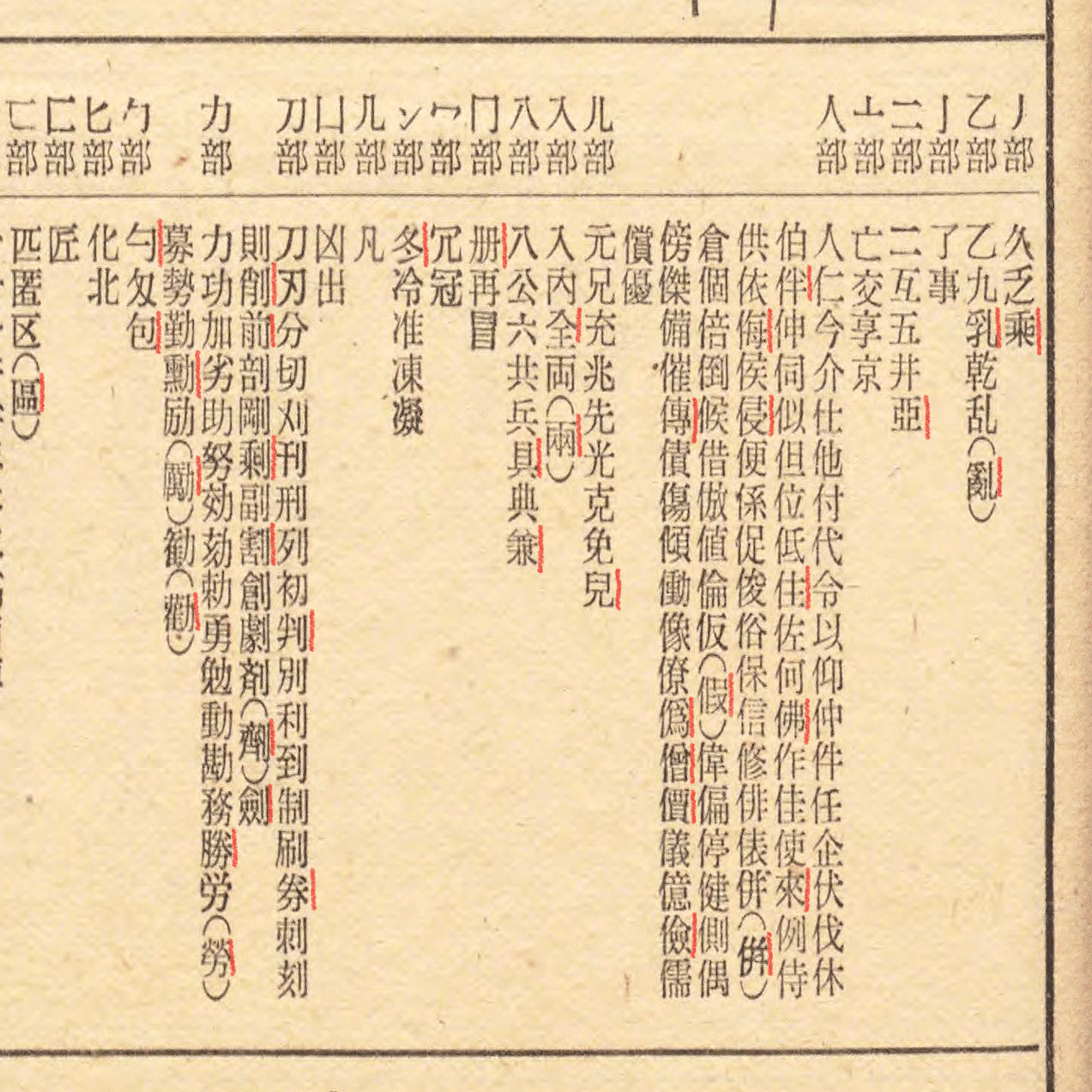 丿部 久乏乘
乙部 乙九乳乾乱(亂)
亅部 了事
二部 二互五井亞
亠部 亡交享京
人部 人仁今介仕他付代令以仰仲件任企伏伐休
伯伴伸伺似但位低住佐何佛作佳使來例侍
供依侮侯侵便係促俊俗保信修俳俵併(倂)
倉個倍倒候借倣値倫仮(假)偉偏停健側偶
傍傑備催傳債傷傾働像僚僞僧價儀億儉儒
償優
儿部 元兄充兆先光克免兒
入部 入内全両(兩)
八部 八公六共兵具典兼
冂部 册再冒
冖部 冗冠
冫部 冬冷准凍凝
几部 凡
凵部 凶出
刀部 刀刃分切刈刊刑列初判別利到制刷券刺刻
則削前剖剛剩副割創劇剤(劑)劍
力部 力功加劣助努効劾勅勇勉動勘務勝労(勞)
募勢勤勳励(勵)勧(勸)
勹部 勺匁包
匕部 化北
匚部 匠
匸部 匹匿区(區)